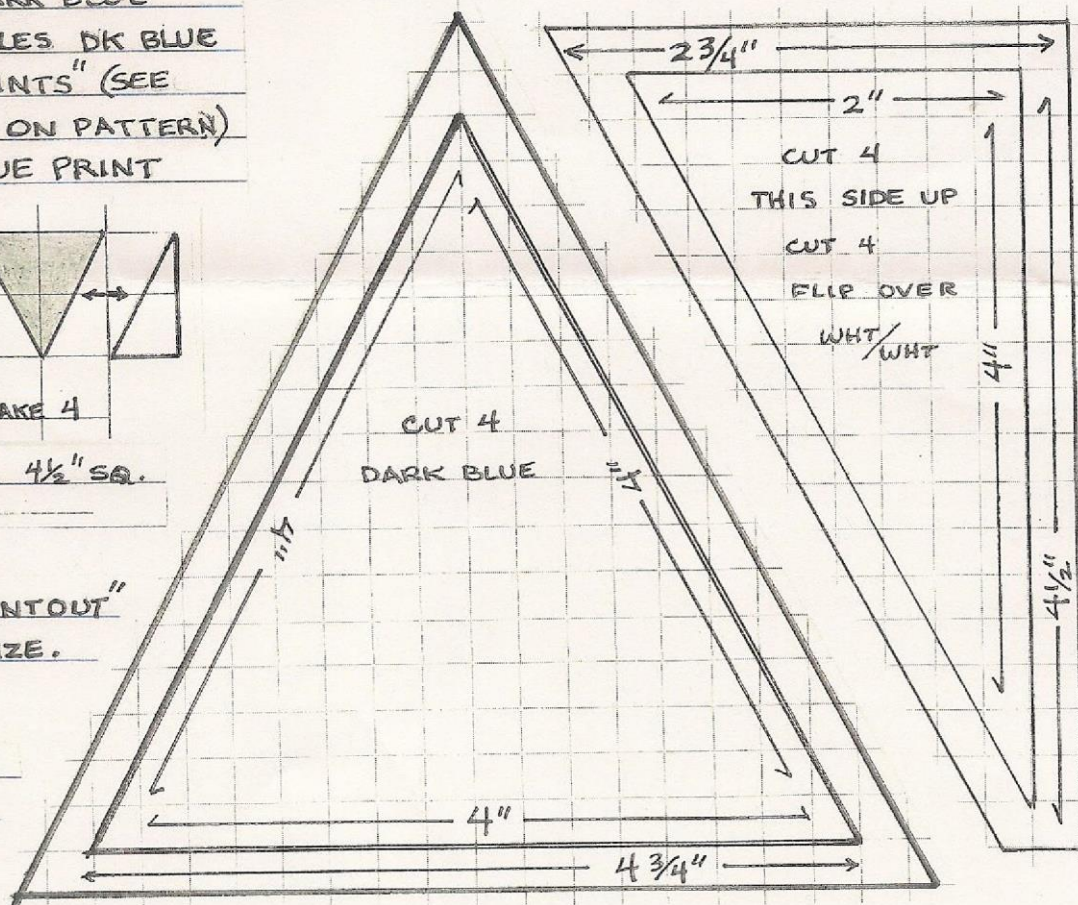 DK BLUE
INTS" (SEE
ON PATTERN)
PRINT
4
4½" SQ.
CUT 4
DARK BLUE
4"
4"
4"
4 3/4"
2 3/4"
2"
CUT 4
THIS SIDE UP
CUT 4
FLIP OVER
WHT/WHT
4"
4½"